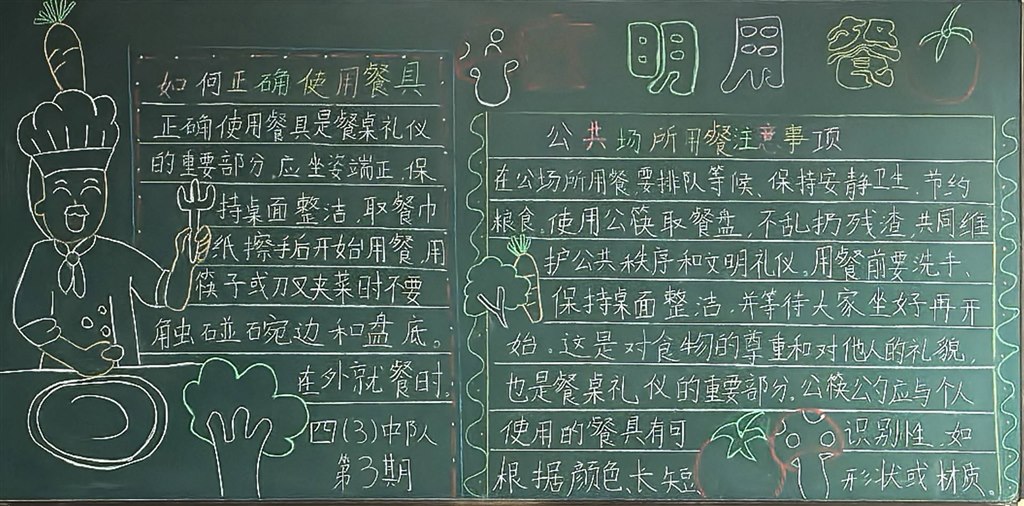 明用餐
如何正确使用餐具
正确使用餐具是餐桌礼仪
的重要部分,应坐姿端正,保
持桌面整洁,取餐巾
纸擦手后开始用餐,用
筷子或刀叉夹菜时不要
触碰碗边和盘底。
在外就餐时,
四(3)中队
第3期
公共场所用餐注意事项
在公场所用餐要排队等候、保持安静卫生,节约
粮食。使用公筷取餐盘,不乱扔残渣,共同维
护公共秩序和文明礼仪。用餐前要洗手、
保持桌面整洁,并等待大家坐好再开
始。这是对食物的尊重和对他人的礼貌,
也是餐桌礼仪的重要部分。公筷公勺应与个人
使用的餐具有可识别性,如
根据颜色、长短形状或材质。